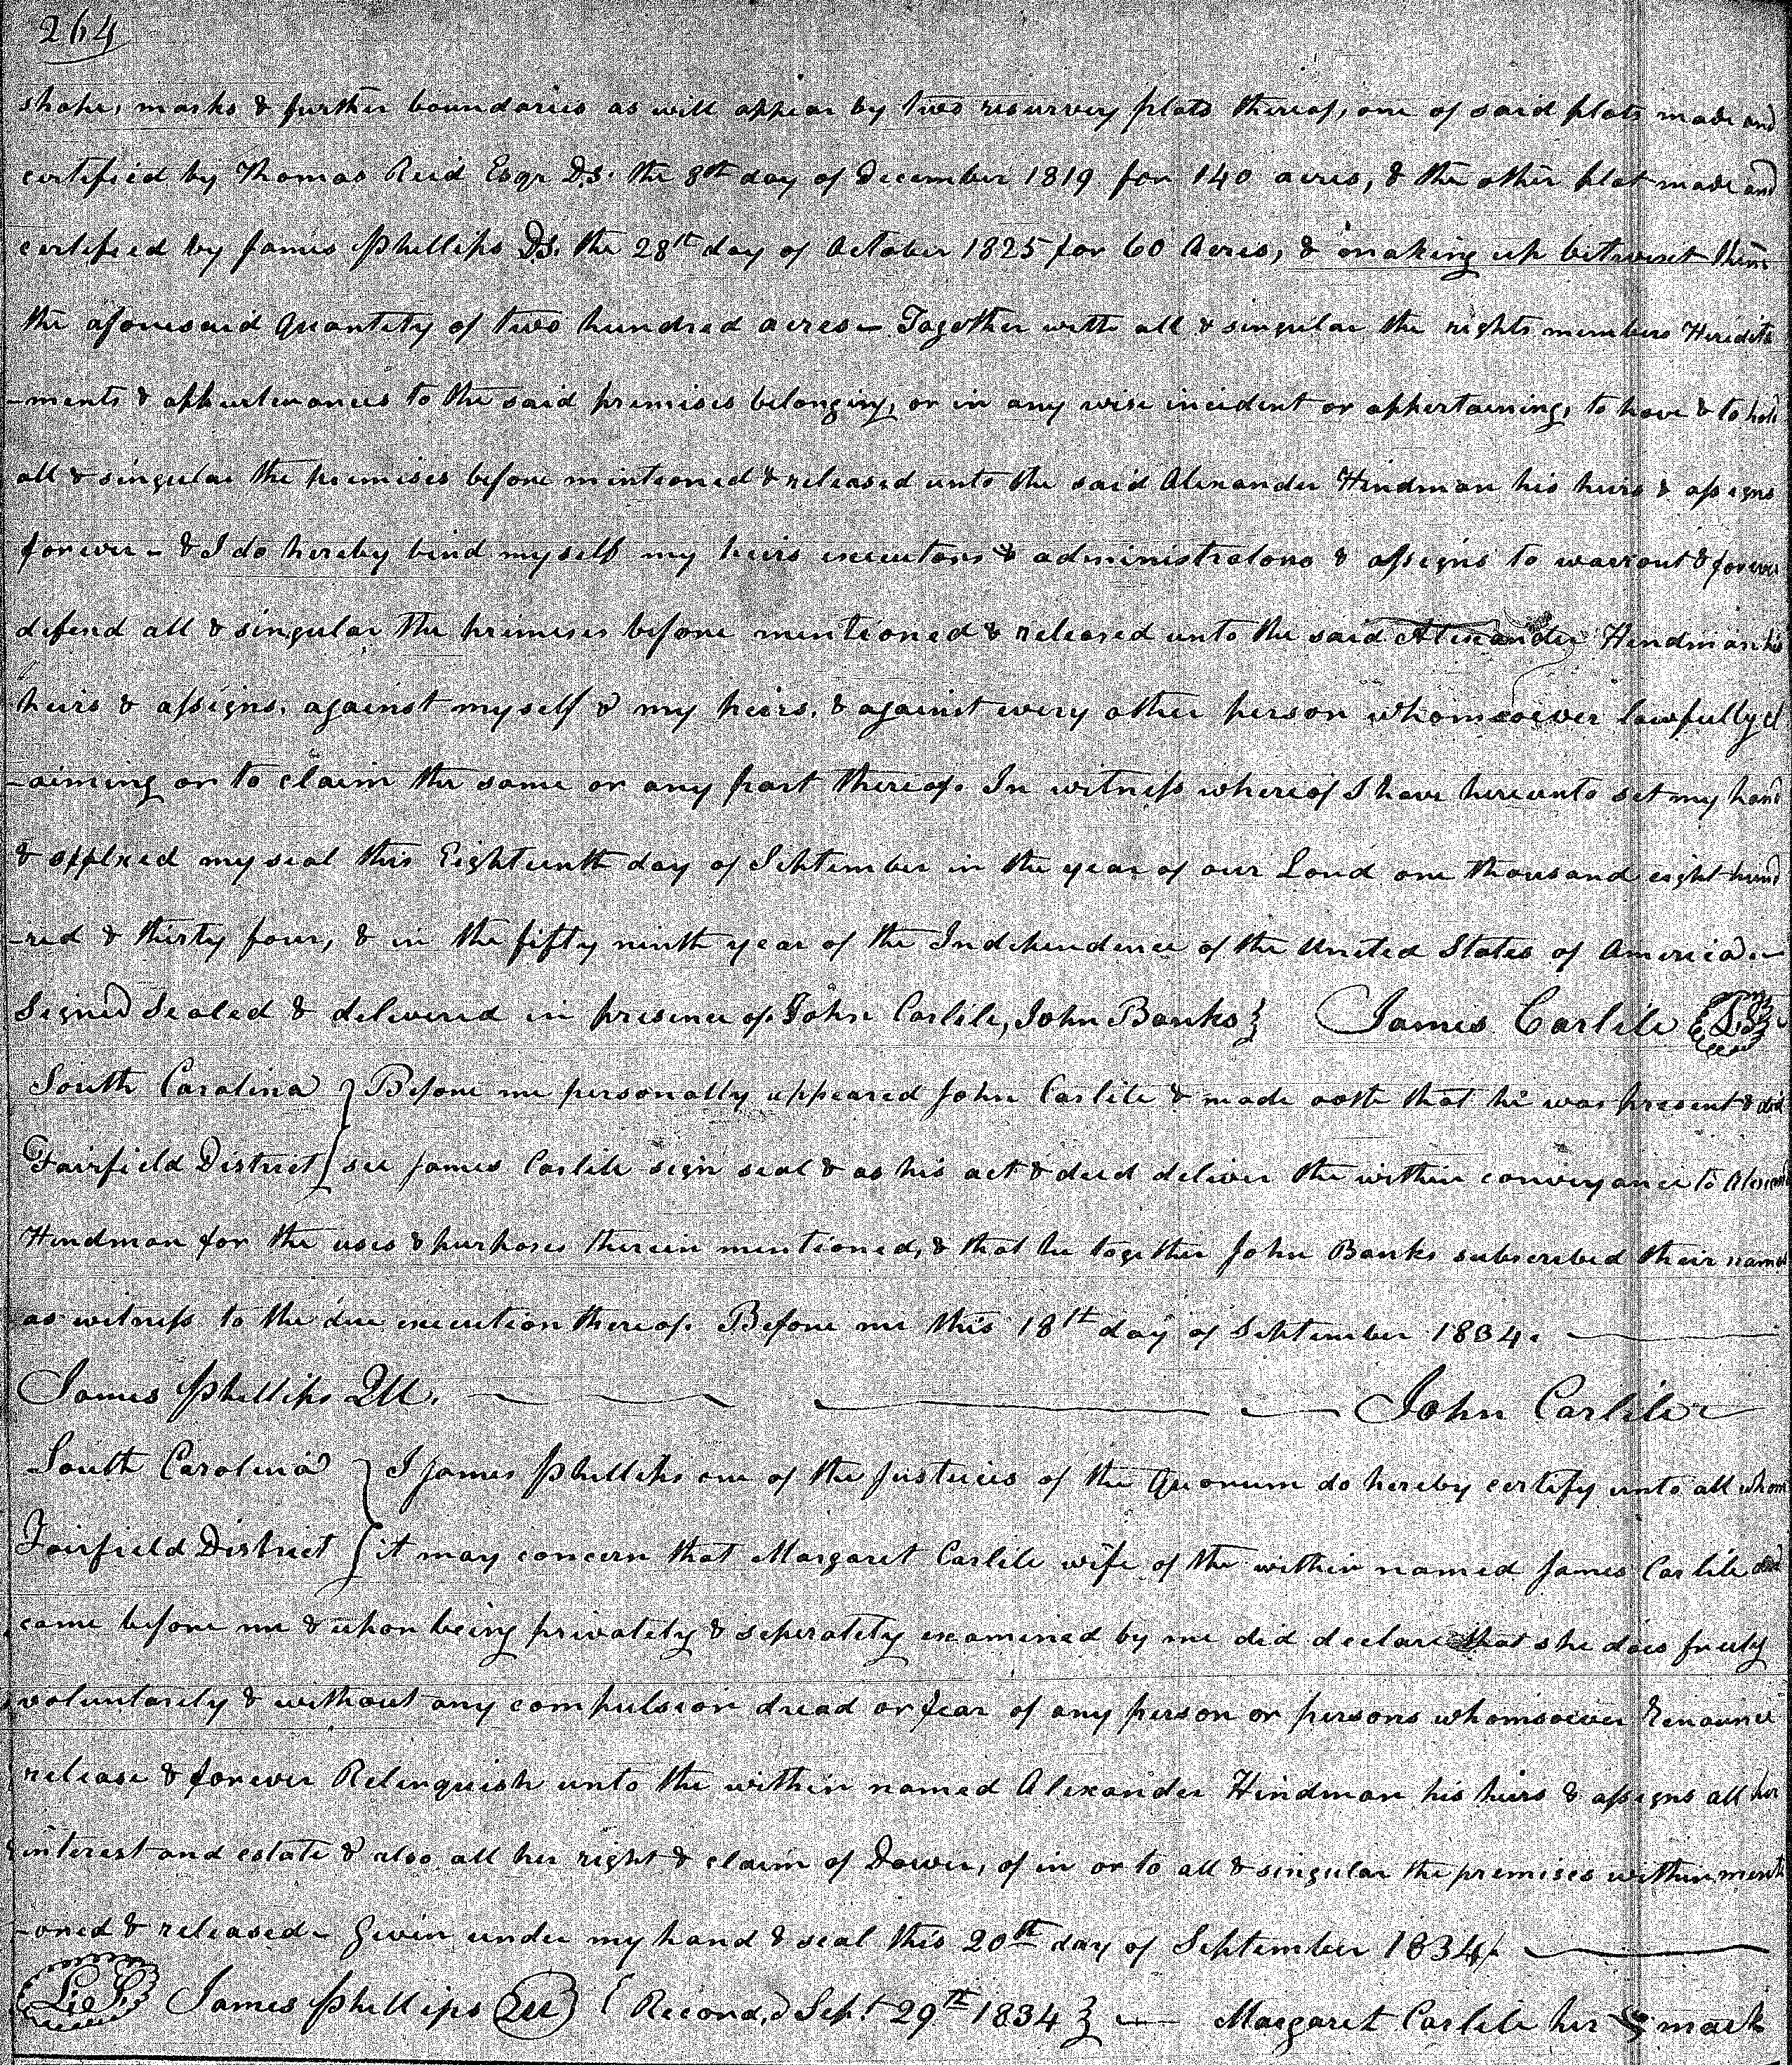 264
shape, marks & further boundaries as will appear by two resurvey plats thereof, one of said plats made and
certified by Thomas Reid Esqr D.S. the 8th day of December 1819 for 140 acres, & the other plat made and
certified by James Phillips D.S. the 28th day of October 1825 for 60 Acres, & making up betwixt them
the aforesaid Quantity of two hundred acres – Together with all & singular the rights members Heredita
-ments & appurtenances to the said premises belonging, or in any wise incident or appertaining, to have & to hold
all & singular the premises before mentioned & released unto the said Alexander Hindman his heirs & assigns
forever – & I do hereby bind myself my heirs executors & administrators & assigns to warrant & forever
defend all & singular the premises before mentioned & released unto the said Alexander Hindman his
heirs & assigns, against myself & my heirs, & against every other person whomsoever lawfully cl
-aiming or to claim the same or any part thereof. In witness whereof I have hereunto set my hand
& affixed my seal this Eighteenth day of September in the year of our Lord one thousand eight hund
-red & thirty four, & in the fifty ninth year of the Independence of the United States of America. –
Signed Sealed & delivered in presence of John Carlile, John Banks } James Carlile L.S.
South Carolina } Before me personally appeared John Carlile & made oath that he was present & did
Fairfield District } see James Carlile sign seal & as his act & deed deliver the within conveyance to Alexand
Hindman for the uses & purposes therein mentioned, & that he together John Banks subscribed their names
as witness to the due execution thereof. Before me this 18th day of September 1834.
James Phillips QU. John Carlile
South Carolina } I James Phillips one of the Justices of the Quorum do hereby certify unto all whom
Fairfield District } it may concern that Margaret Carlile wife of the within named James Carlile did
came before me & upon being privately & seperately examined by me did declare that she does freely
voluntarily & without any compulsion dread or fear of any person or persons whomsoever Renounce
release & forever Relinquish unto the within named Alexander Hindman his heirs & assigns all her
interest and estate & also all her right & claim of Dower, of in or to all & singular the premises within menti
-oned & released – Given under my hand & seal this 20th day of September 1834
L.S. James Phillips QU { Record,d Sept 29th 1834 } – Margaret Carlile her mark